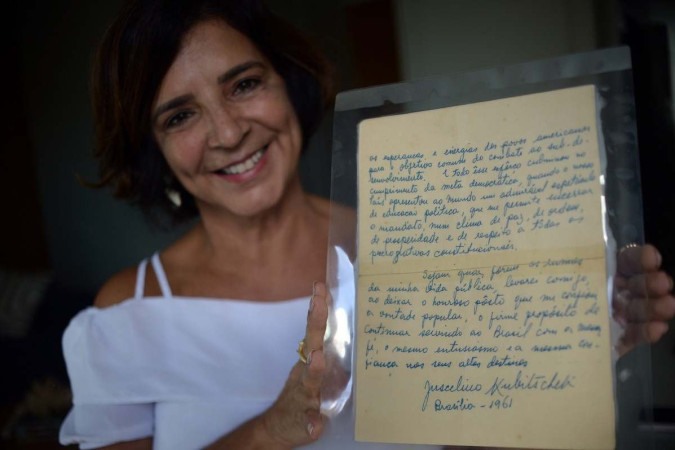 as esperanças e energias dos povos americanos
para o objetivo comum do combate ao sub-de-
senvolvimento. E todo esse esforço culminou no
cumprimento da meta democrática, quando o nosso
País apresentou ao mundo um admirável espetáculo
de educação política, que me permite encerrar
o mandato, num clima de paz, de ordem,
de prosperidade e de respeito a todas as
prerrogativas constitucionais.
Sejam quais forem os rumos
da minha vida pública, levarei comigo,
ao deixar o honroso pôsto que me confiou
a vontade popular, o firme propósito de
continuar servindo ao Brasil com a mesma
fé, o mesmo entusiasmo e a mesma con-
fiança nos seus altos destinos.
Juscelino Kubitschek
Brasília - 1961